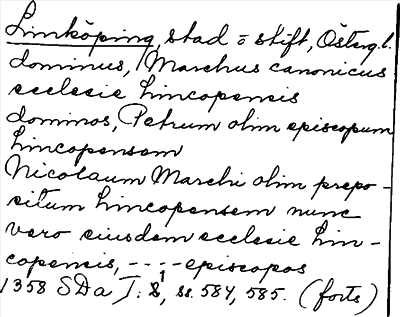 Linköping, stad o stift, Österg. l.
dominus, Marchus canonicus
ecclesie lincopensis
dominos, Petrum olim episcopum
lincopensem
Nicolaum Marchi olim prepo-
situm lincopensem nunc
vero eiusdem ecclesie lin-
copensis, ---- episcopos
1358 SDa I: 1, ss. 584, 585. (forts)